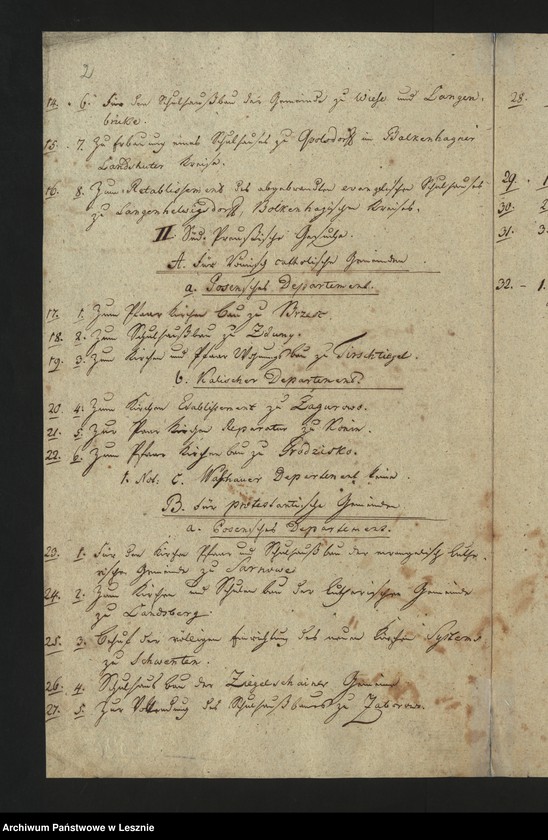 2
14. 6. Für den Schulhaußbau der Gemeinde zu Wiese und Langen-
brücke.
28.
15. 7. Zu Erbauung eines Schulhauses zu in Bolkenhagner
Landshuter Kreise.
16. 8. Zum Retablissement des abgebrandten evangelischen Schulhauses
zu Langenhelwigsdorff, Bolkenhagischen Kreises.
29. 1
30. 2
31. 3.
II Süd-Preußische Gesuche.
A. Für Römisch catholische Gemeinden.
a. Posensches Departement.
32. - 1.
17. 1. Zum Pfarr Kirchen bau zu Brzesc
18. 2. Zum Schulhaußbau zu Zduny.
19. 3. Zum Kirchen und Pfarr Wohnungsbau zu Tirschtiegel.
b. Kalischer Departement.
20. 4. Zum Kirchen Etablissement zu Zagurowo.
21. 5. Zur Pfarr Kirchen Reparatur zu Konin.
22. 6. Zum Pfarr Kirchen bau zu Grodzisko.
1. Not: C. Warschauer Departement keine.
B. Für protestantische Gemeinden
a. Posensches Departement.
23. 1. Für den Kirchen Pfarr und Schulhauß bau der evangelisch luthe-
rischen Gemeinde zu Sarnowe
24. 2. Zum Kirchen und Schulen bau der lutherischen Gemeinde
zu Landsberg
25. 3. Behuf der völligen Einrichtung des neuen Kirchen Systems
zu Schwenten.
26. 4. Schulhaus bau der Ziegelschainer Gemeine
27. 5. Zur Vollendung des Schulhaußbaues zu Zaborowo.
Archiwum Państwowe w Lesznie